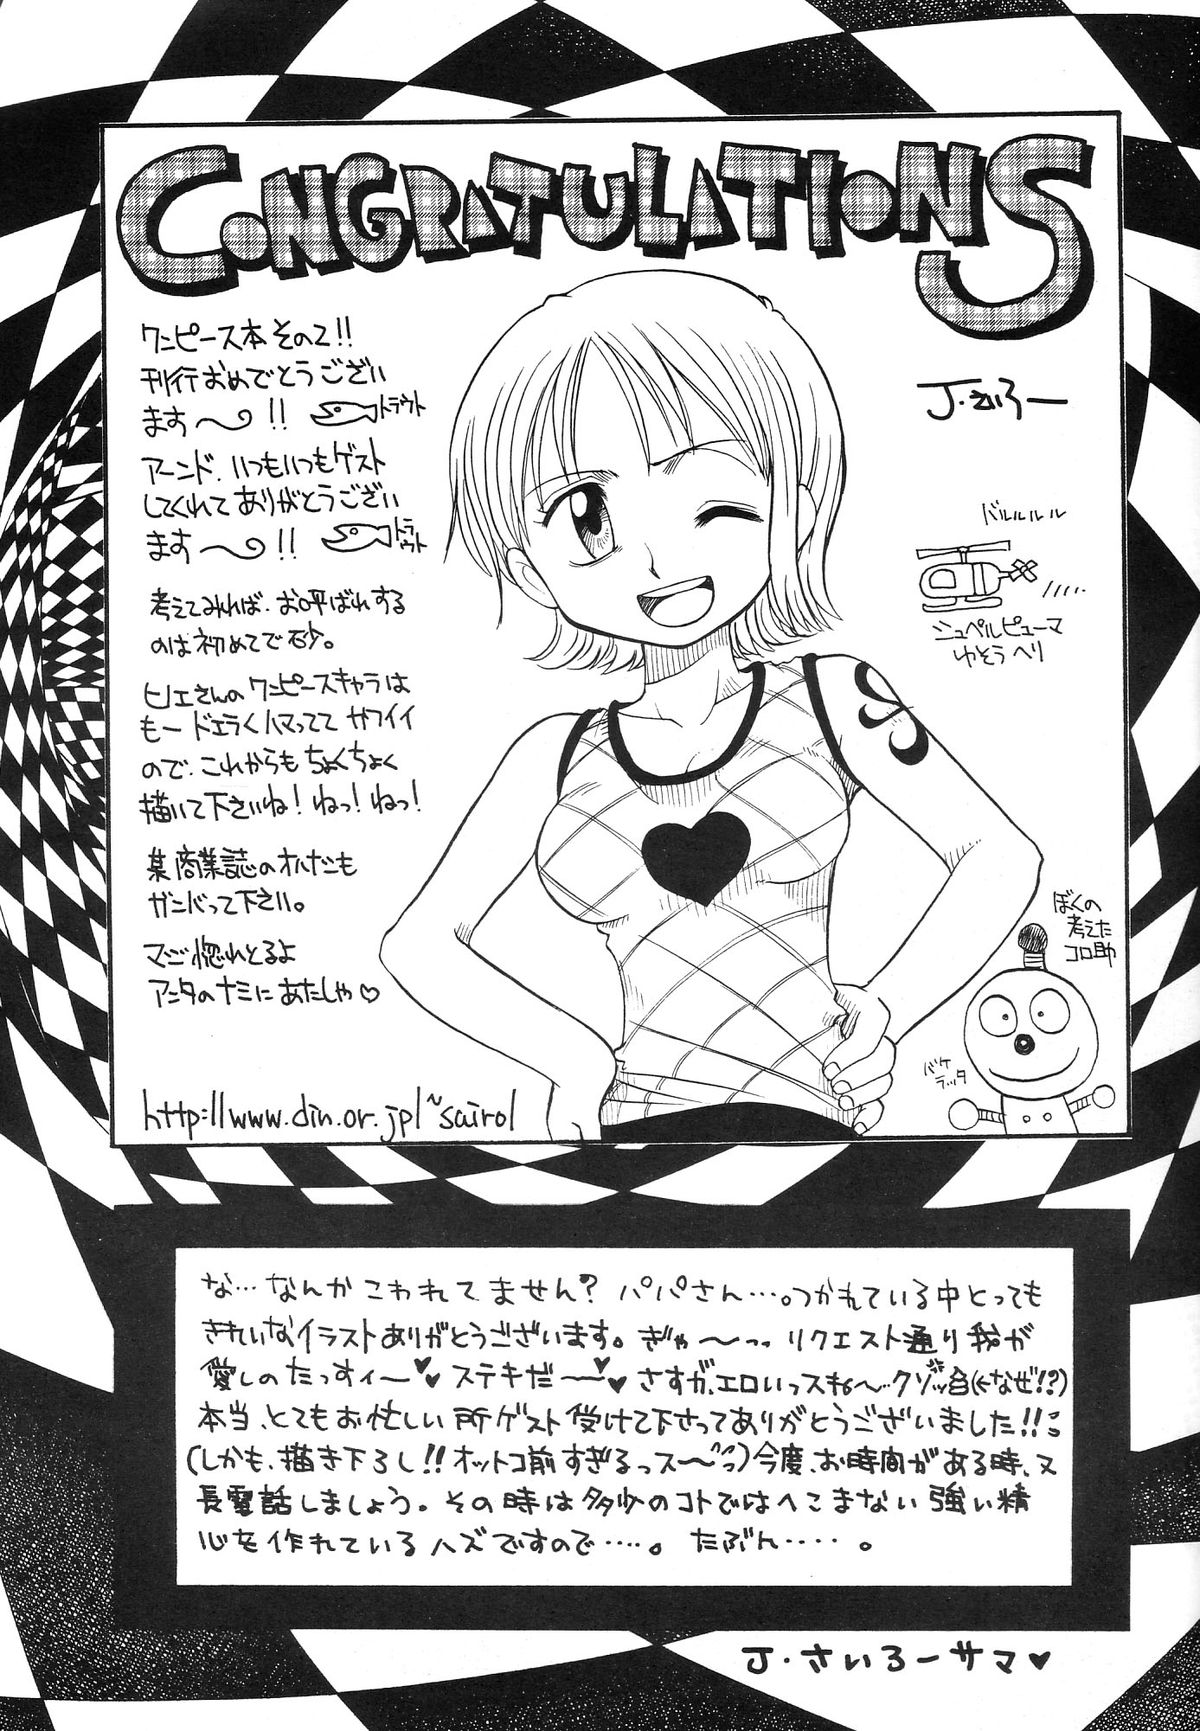 CONGRATULATIONS
ワンピース本その2!!
刊行おめでとうござい
ます〜!! トラウト
アーンド、いつもいつもゲスト
してくれてありがとうござい
ます〜!! トラウト
考えてみれば、お呼ばれする
のは初めてで砂。
ヒノエさんのワンピースキャラは
もードエラくハマってて カワイイ
ので、これからもちょくちょく
描いて下さいね!ねっ!ねっ!
某商業誌のオハナシも
ガンバって下さい。
マジ惚れとるよ
アンタのナミにあたしゃ♡
http://www.din.or.jp/~sairo/
J・さいろー
バルルルル
シュペルピューマ
ゆそうヘリ
ぼくの
考えた
コロ助
バケ
ラッタ
な…なんかこわれてません? パパさん…。つかれている中とっても
きれいなイラストありがとうございます。ぎゃ〜っっ リクエスト通り我が
愛しのたっすィー♥♥ステキだ〜♥♥さすが、エロいっスね〜…クソッ(←なぜ!?)
本当、とてもお忙しい所ゲスト受けて下さってありがとうございました!!
(しかも、描き下ろし!!オットコ前すぎるっス〜)今度、お時間がある時、又
長電話しましょう。その時は多少のコトではへこまない強い精
心を作れているハズですので……。たぶん……。
J・さいろーサマ♥